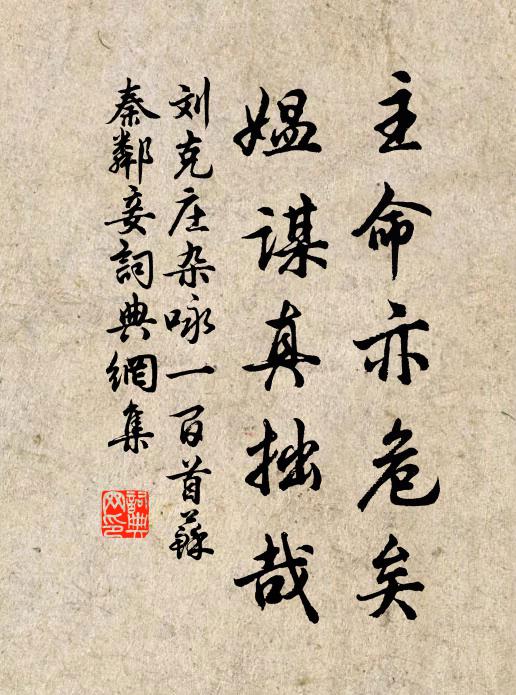 主命亦危矣
媪谋真拙哉
刘克庄杂咏一百首蘇
秦鄰妾詞典網集
詞典
网印